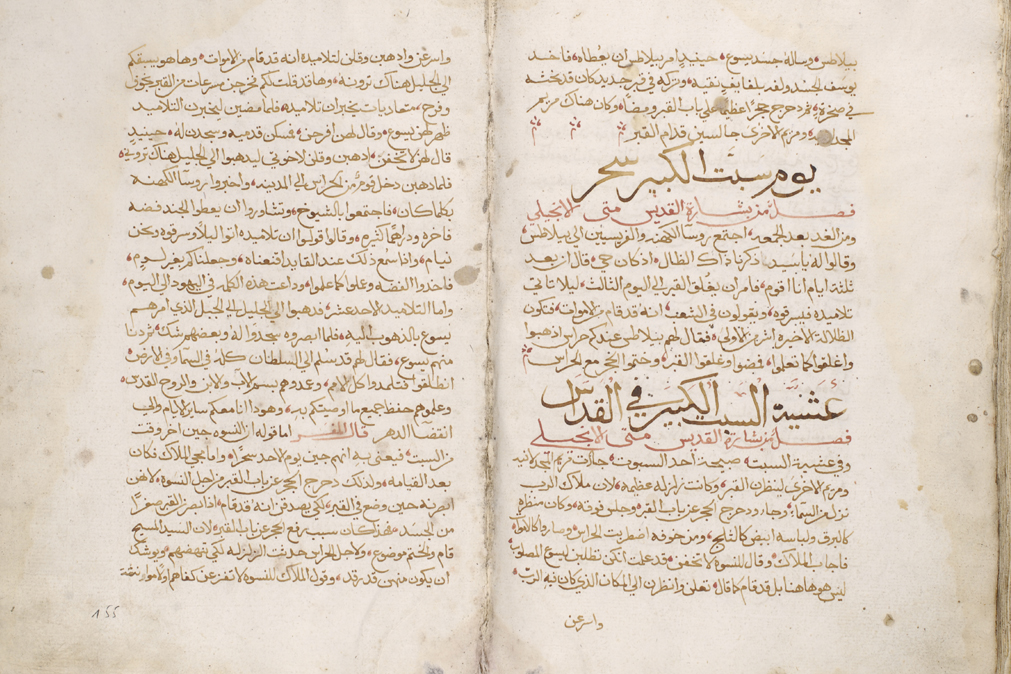 بيلاطس وساله جسد يسوع حينيذ امر بيلاطس ان يعُطاه فاخد
يوسف الجسد ولفه بلفايف نقيه وتركه في قبر جديد كان قد نحته
في صخرة ثم دحرج حجرًا عظيمًا علي باب القبر ومضا وكان هناك مريم
المجدلانيه ومريم الاخرى جالستين قدام القبر
يوم سبت الكبير سحر
فصل من بشارة القديس متى الانجيلي
ومن الغد بعد الجمعه اجتمع روسا الكهنه والفريسيين الي بيلاطس
وقالوا له ياسيد ذكرنا ذاك الظال اذ كان حي قال ان بعد
ثلثة ايام انا اقوم فامر ان يغُلق القبر الي اليوم الثالث ليلا تاتي
تلاميذه فيسرقوه ويقولون في الشعب انه قد قام من الاموات فتكون
الظلالة الاخيرة اشر من الاولي فقال لهم بيلاطس عندكم حراس اذهبوا
واغلقوا كما تعلموا فمضوا وغلقوا القبر وختموا الحجر مع الحراس
عشية السبت الكبير في القداس
فصل من بشارة القديس متى الانجيلي
وفي عشية السبت صبيحة احد السبوت جات مريم المجدلانيه
ومريم الاخرى لينظران القبر وكانت زلزله عظيمه لان ملاك الرب
نزل من السما وجا ودحرج الحجر عن باب القبر وجلس فوقه وكان منظره
كالبرق ولباسه ابيض كالثلج ومن خوفه اضطربت الحراس وصاروا كالاموات
فاجاب الملاك وقال للنسوه لا تخفن قد علمت انكن تطلبن يسوع المصلوب
ليس هو هاهنا بل قد قام كما قال تعلن وانظرن الي المكان الذي كان فيه الرب
واسرعن
واسرعن واذهبن وقلن لتلاميذه انه قد قام من الاموات وها هو يسبقكم
الي الجليل هناك ترونه وها قد قلت لكم فخرجن مسرعات من القبر بخوف
وفرح متعاديات يخبران تلاميذه فلما مضين ليخبرن التلاميذ
ظهر لهن يسوع وقال لهن افرحن فمسكن قدميه وسجدن له حينيذ
قال لهن لا تخفن اذهبن وقلن لاخوتي ليذهبوا الي الجليل هناك تروني
فلما ذهبن دخل قومٌ من الحراس الي المدينه واخبروا روسا الكهنه
بكلما كان فاجتمعوا بالشيوخ وتشاوروا ان يعطوا الجند فضه
فاخره ودراهم كثيره وقالوا قولوا ان تلاميذه اتوا ليلًا وسرقوه ونحن
نيام واذا سمع ذلك عند القايد اقنعناه وجعلناكم بغير لوم
فاخذوا الفضه وعلوا كما علموا وذاعت هذه الكلمه في اليهود الي اليوم
واما التلاميذ الاحد عشر فذهبوا الي الجليل الي الجبل الذي امرهم
يسوع بالذهوب اليه فلما ابصروه سجدوا له وبعضهم شك ثم دنا
منهم يسوع فقال لهم قد سلم الي السلطان كله في السما وفي الارض
انطلقوا تتلمدوا كل الامم وعمدوهم بسم الاب والابن والروح القدس
وعلموهم حفظ جميع ما اوصيتكم به وهوذا انا معكم ساير الايام والي
انقضا الدهر قال المفسر اما قوله ان النسوه جين اخر وقت
من السبت فيعني به انهم جين يوم الاحد سحرًا واما مجي الملاك فكان
بعد القيامه ولذلك دحرج الحجر عن باب القبر من اجل النسوه لانهن
ابصرنه حين وضع في القبر لكي يصدقن انه قد قام اذا نظرن القبر صفرًا
من الجسد فهذا كان سبب رفع الحجر عن باب القبر لان السيد المسيح
قام والختم موضوع ولاجل الحراس حدثت الزلزله لكي تنهضهم ويوشك
ان يكون منهن قد رقد وقول الملاك للنسوه لا تفزعن
155